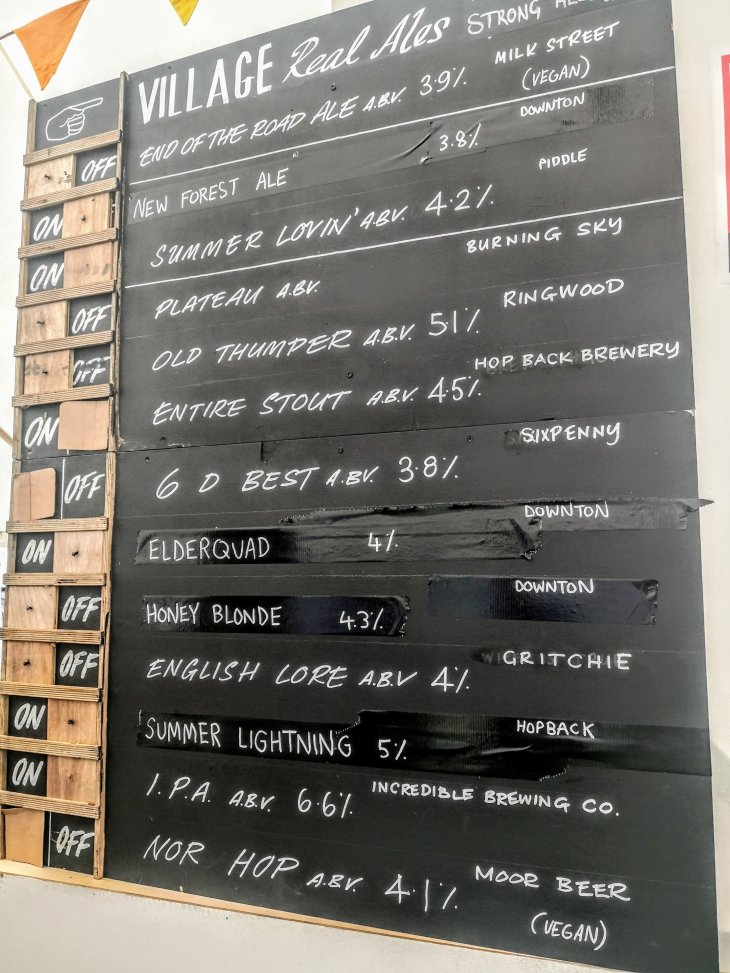 VILLAGE Real Ales STRONG
OFF END OF THE ROAD ALE A.B.V. 3.9% MILK STREET
(VEGAN)
ON NEW FOREST ALE 3.8% DOWNTON
ON SUMMER LOVIN' A.B.V. 4.2% PIDDLE
OFF PLATEAU A.B.V. BURNING SKY
OFF OLD THUMPER A.B.V. 5.1% RINGWOOD
ON ENTIRE STOUT A.B.V. 4.5% HOP BACK BREWERY
OFF 6 D BEST A.B.V. 3.8% SIXPENNY
ON ELDERQUAD 4% DOWNTON
OFF HONEY BLONDE 4.3% DOWNTON
OFF ENGLISH LORE A.B.V 4% GRITCHIE
ON SUMMER LIGHTNING 5% HOPBACK
ON I.P.A. A.B.V. 6.6% INCREDIBLE BREWING CO.
OFF NOR HOP A.B.V. 4.1% MOOR BEER
(VEGAN)